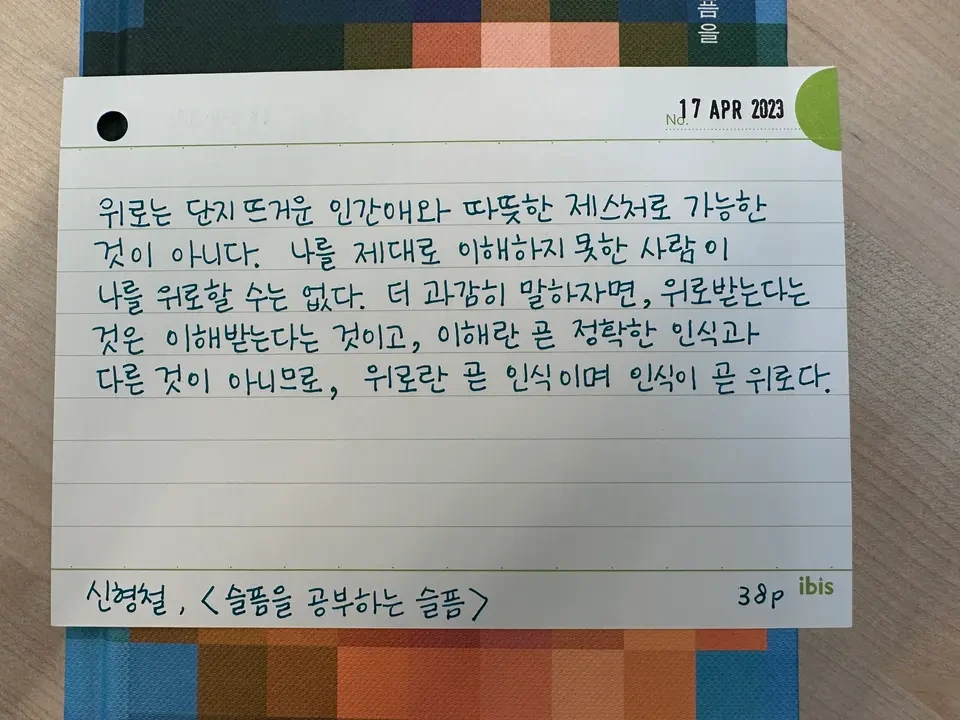 픔을
No. 17 APR 2023
위로는 단지 뜨거운 인간애와 따뜻한 제스처로 가능한
것이 아니다. 나를 제대로 이해하지 못한 사람이
나를 위로할 수는 없다. 더 과감히 말하자면, 위로받는다는
것은 이해받는다는 것이고, 이해란 곧 정확한 인식과
다른 것이 아니므로, 위로란 곧 인식이며 인식이 곧 위로다.
신형철, <슬픔을 공부하는 슬픔> 38p
ibis